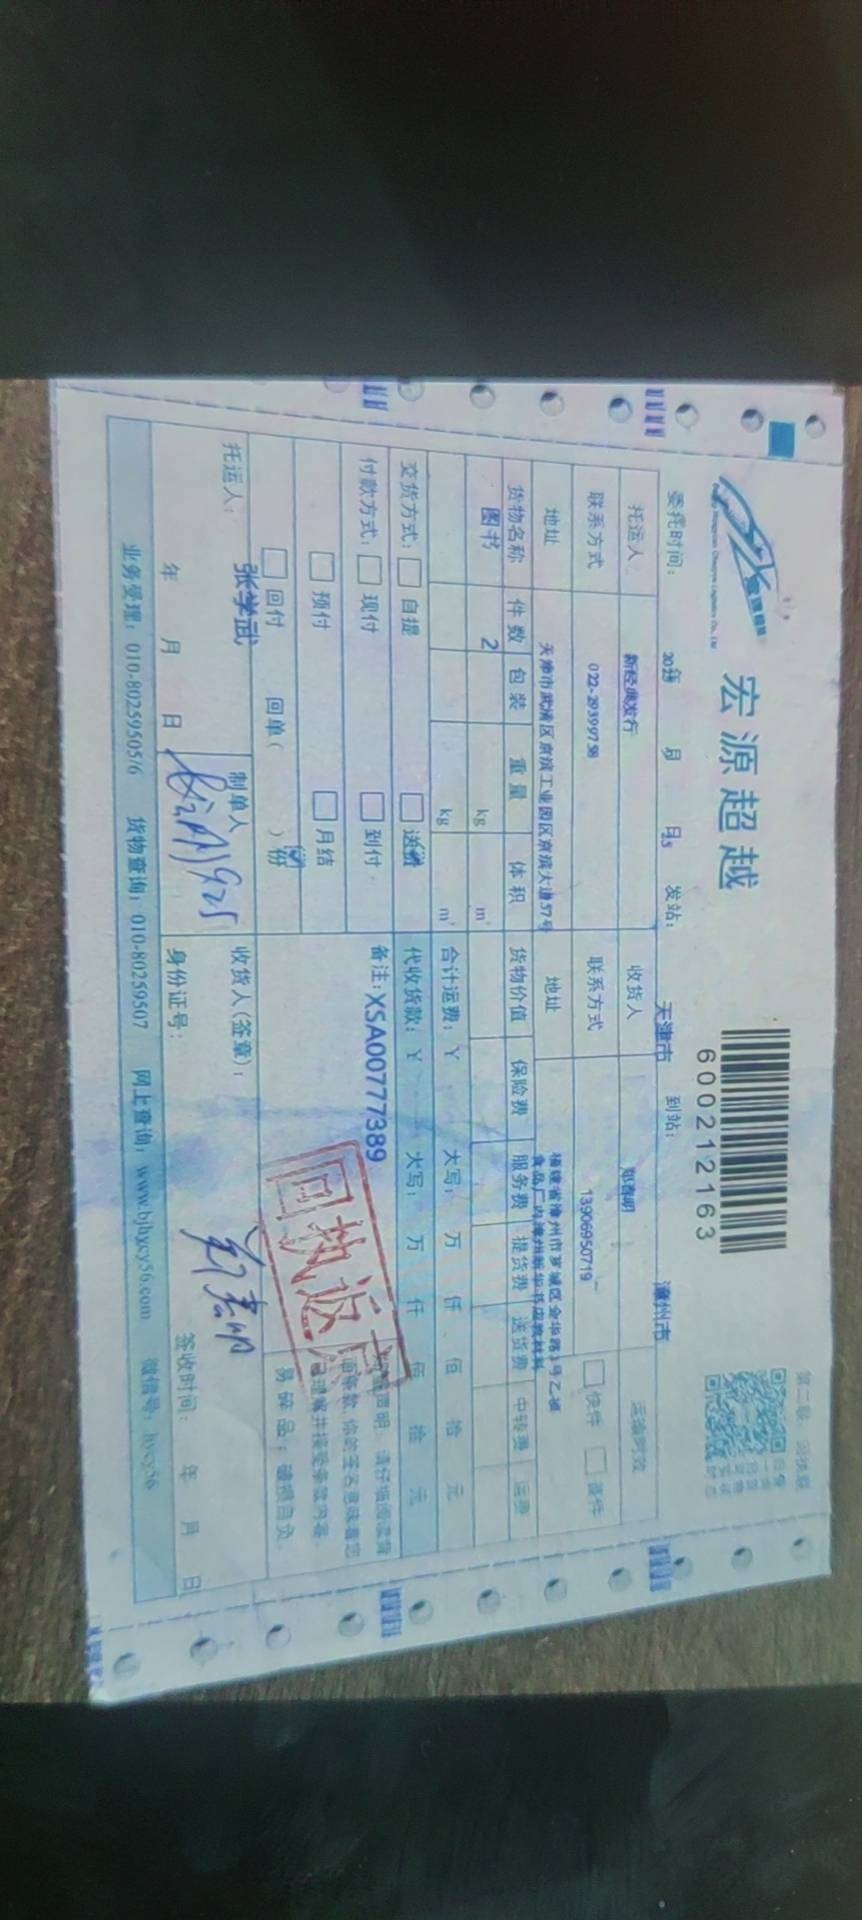 宏源超越
600212163
第二联：回执联
委托时间： 年 月 日 发站： 天津市 到站： 漳州市
托运人 新经典发行 收货人 郑春明 运输时效
联系方式 022-29399758 联系方式 13906950719 快件 普件
地址 天津市武清区京滨工业园区京滨大道57号 地址 福建省漳州市芗城区金华路3号乙祺
食品厂内漳州新华书店教材科
货物名称 件数 包装 重量 体积 货物价值 保险费 服务费 提货费 送货费 中转费 运费
图书 2 kg m³
kg m³ 合计运费：￥ 大写： 万 仟 佰 拾 元
交货方式： 自提 送货 代收货款：￥ 大写： 万 仟 佰 拾 元
付款方式： 现付 到付 备注：XSA00777389
预付 月结
回付 回单（ ）份
声明：请仔细阅读背
面条款，你的签名意味着您
已理解并接受条款内容。
易碎品，破损自负
回执返
托运人： 张学武 制单人 收货人（签章）：
年 月 日 身份证号： 签收时间： 年 月 日
业务受理：010-80259505/6 货物查询：010-80259507 网上查询：www.bjhycy56.com 微信号：hycy56